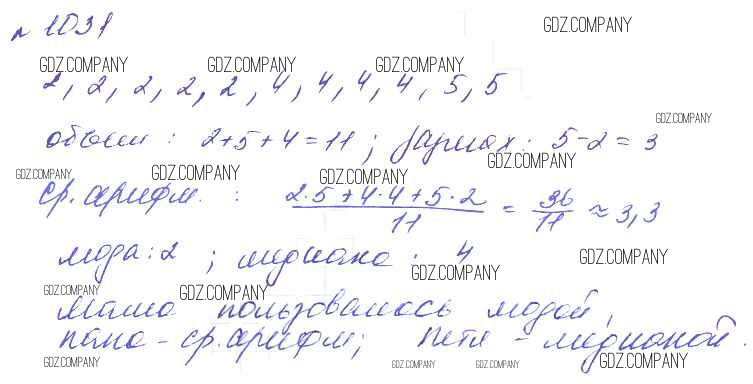 № 1031
GDZ.COMPANY
GDZ.COMPANY GDZ.COMPANY GDZ.COMPANY
2, 2, 2, 2, 2, 4, 4, 4, 4, 5, 5
GDZ.COMPANY
объем : 2+5+4=11 ; размах : 5-2=3
GDZ.COMPANY GDZ.COMPANY GDZ.COMPANY GDZ.COMPANY
ср. арифм. : (2·5+4·4+5·2)/11 = 36/11 ≈ 3,3
мода : 2 ; медиана : 4
GDZ.COMPANY GDZ.COMPANY
GDZ.COMPANY GDZ.COMPANY
Маша пользовалась модой,
папа - ср. арифм; Петя - медианой.
GDZ.COMPANY GDZ.COMPANY GDZ.COMPANY GDZ.COMPANY